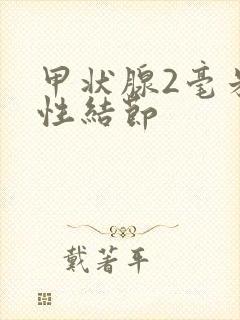 甲状腺2毫
性結節
戴著平